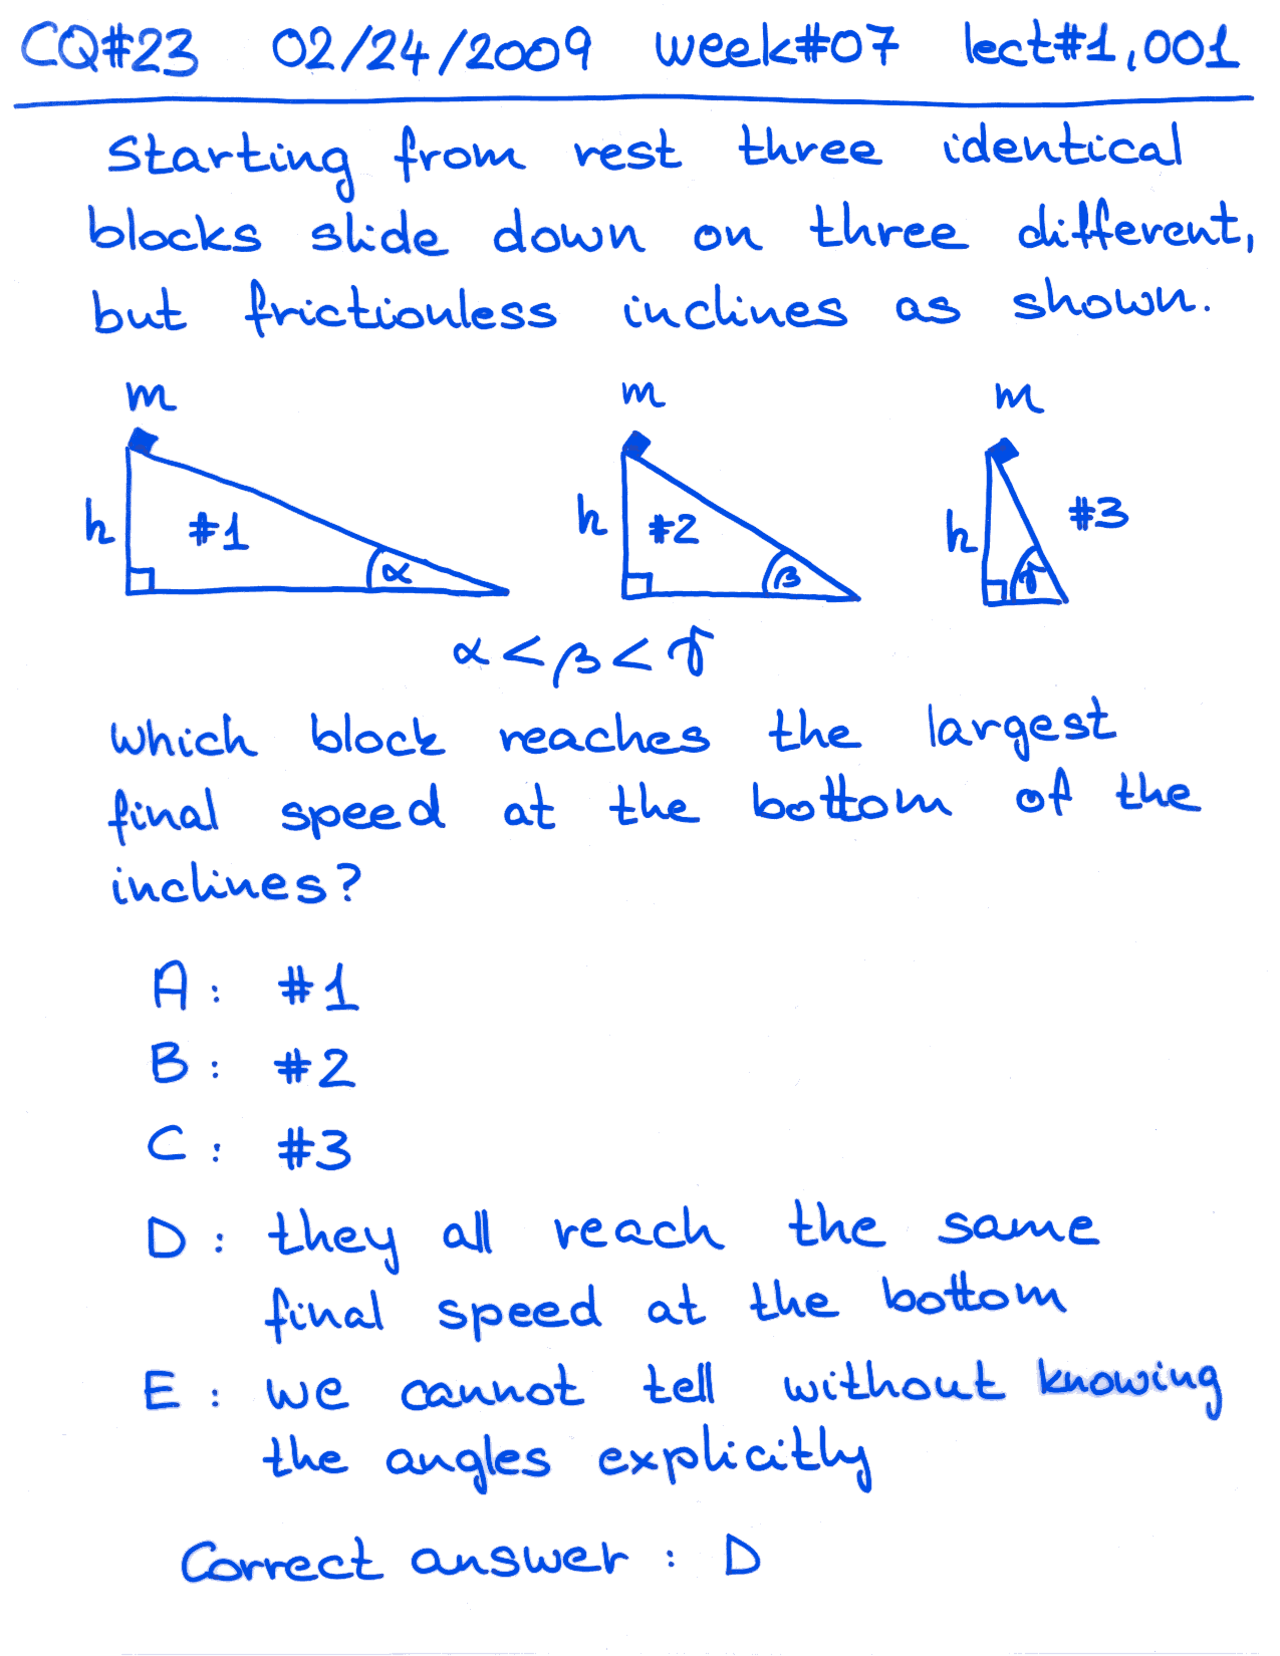 CQ#23 02/24/2009 week#07 lect#1,001
Starting from rest three identical
blocks slide down on three different,
but frictionless inclines as shown.
m m m
h #1 α h #2 β h γ #3
α < β < γ
Which block reaches the largest
final speed at the bottom of the
inclines?
A: #1
B: #2
C: #3
D: they all reach the same
final speed at the bottom
E: we cannot tell without knowing
the angles explicitly
Correct answer: D